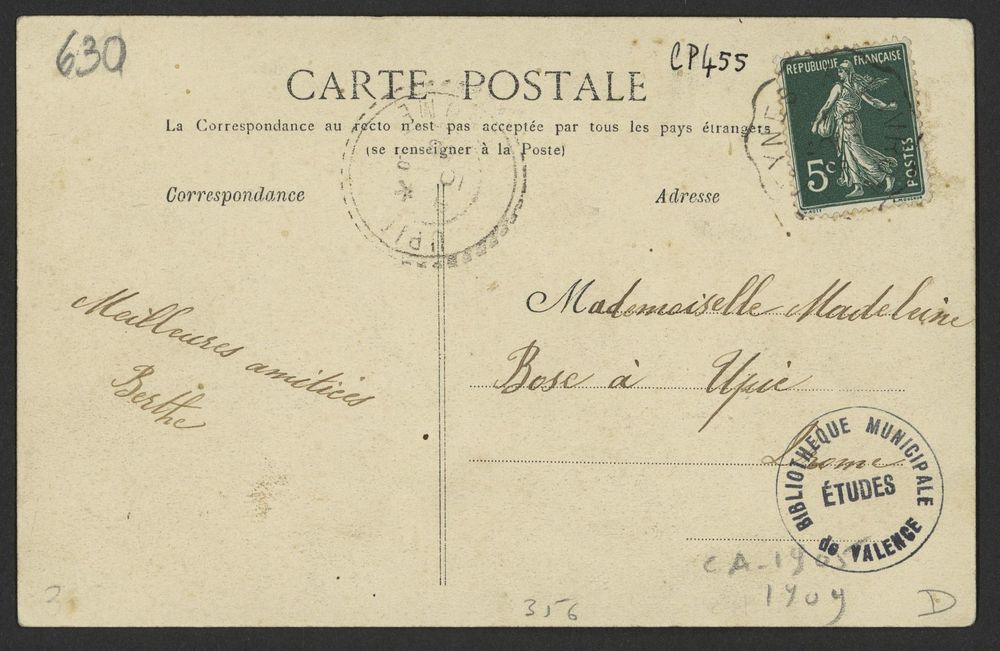 630
CP455
CARTE POSTALE
La Correspondance au recto n'est pas acceptée par tous les pays étrangers
(se renseigner à la Poste)
Correspondance
Adresse
REPUBLIQUE FRANÇAISE
5c
POSTES
UPIE
Meilleures amitiés
Berthe
Mademoiselle Madeleine
Bosc à Upie
Drome
BIBLIOTHEQUE MUNICIPALE
ÉTUDES
de VALENCE
CA-1905
1909
356
D